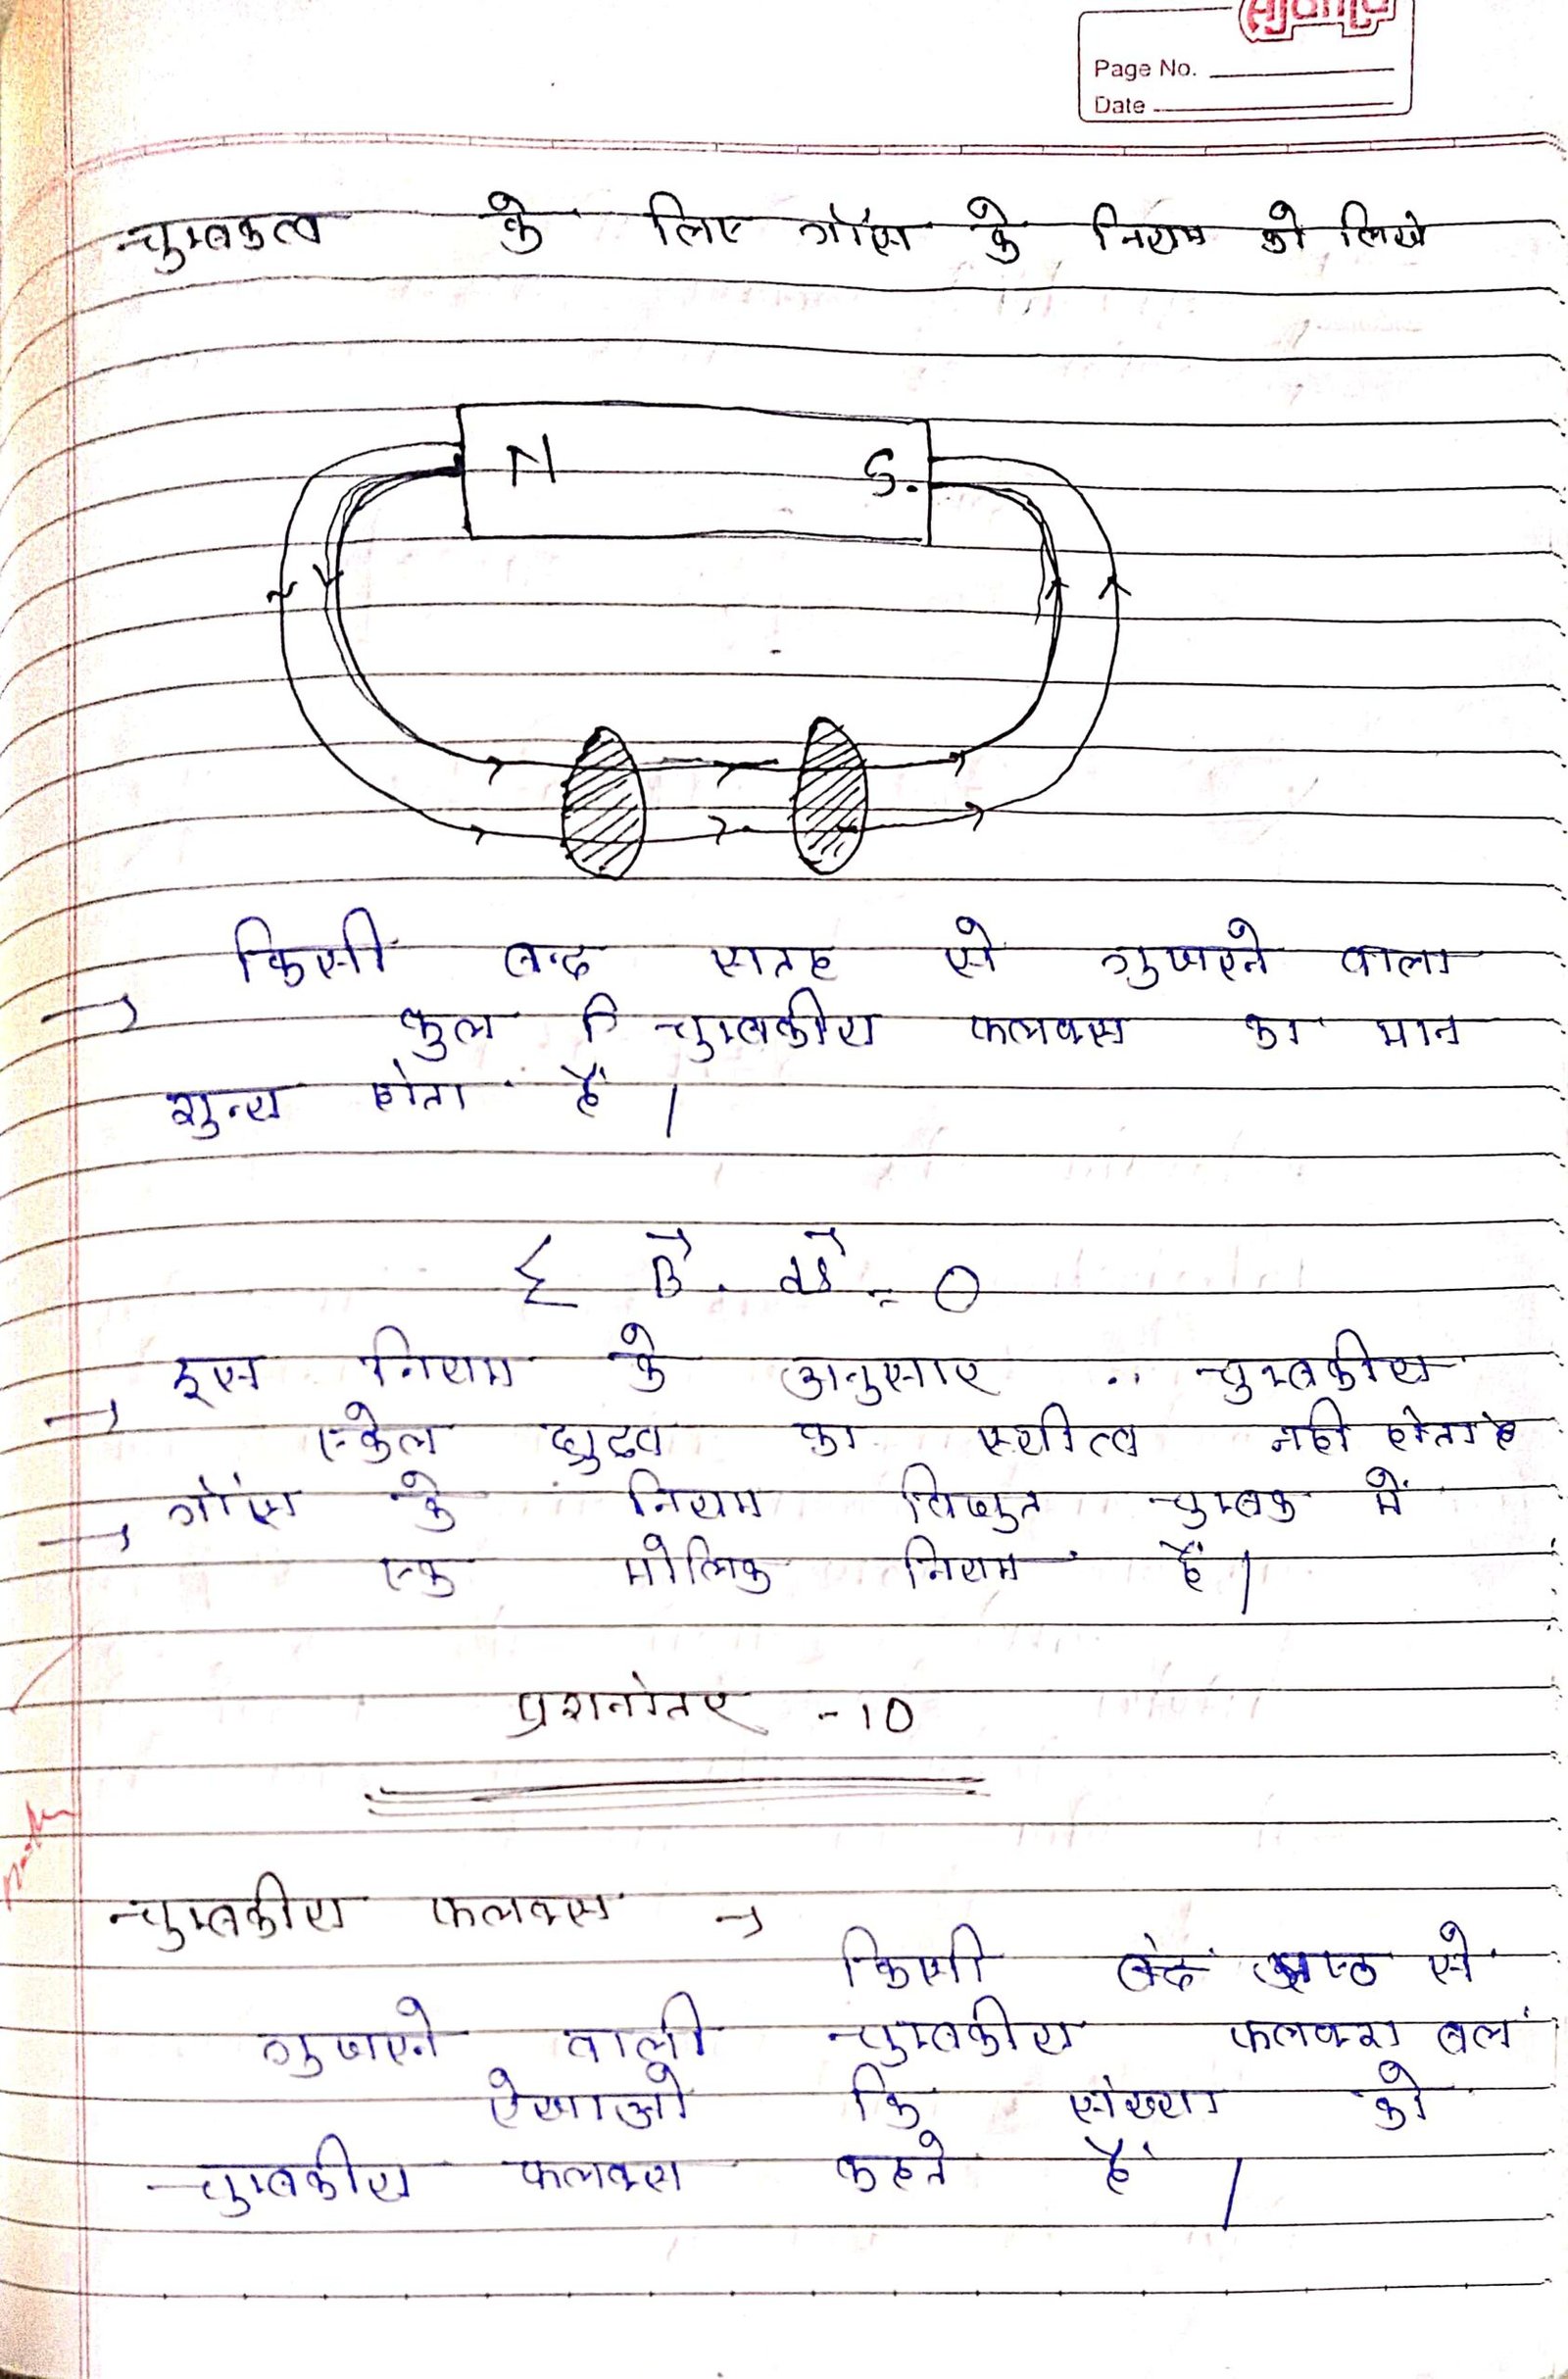 Ajanta
Page No.
Date
चुम्बकत्व के लिए गॉस के नियम को लिखे
N S.
किसी बन्द सतह से गुजरने वाला
→ कुल चुम्बकीय फलक्स का मान
शुन्य होता हैं |
Σ B⃗ . ds⃗ = 0
इस नियम के अनुसार चुम्बकीय
→ एकेल ध्रुव का स्थीत्व नही होता है
गॉस के नियम विधुत चुम्बक में
→ एक मोलिक नियम हैं |
प्रशनोतर -10
चुम्बकीय फलक्स →
किसी बंद से
गुजरने वाली चुम्बकीय फलक्स बल
रेखाओ कि संख्या को
चुम्बकीय फलक्स कहते हैं |